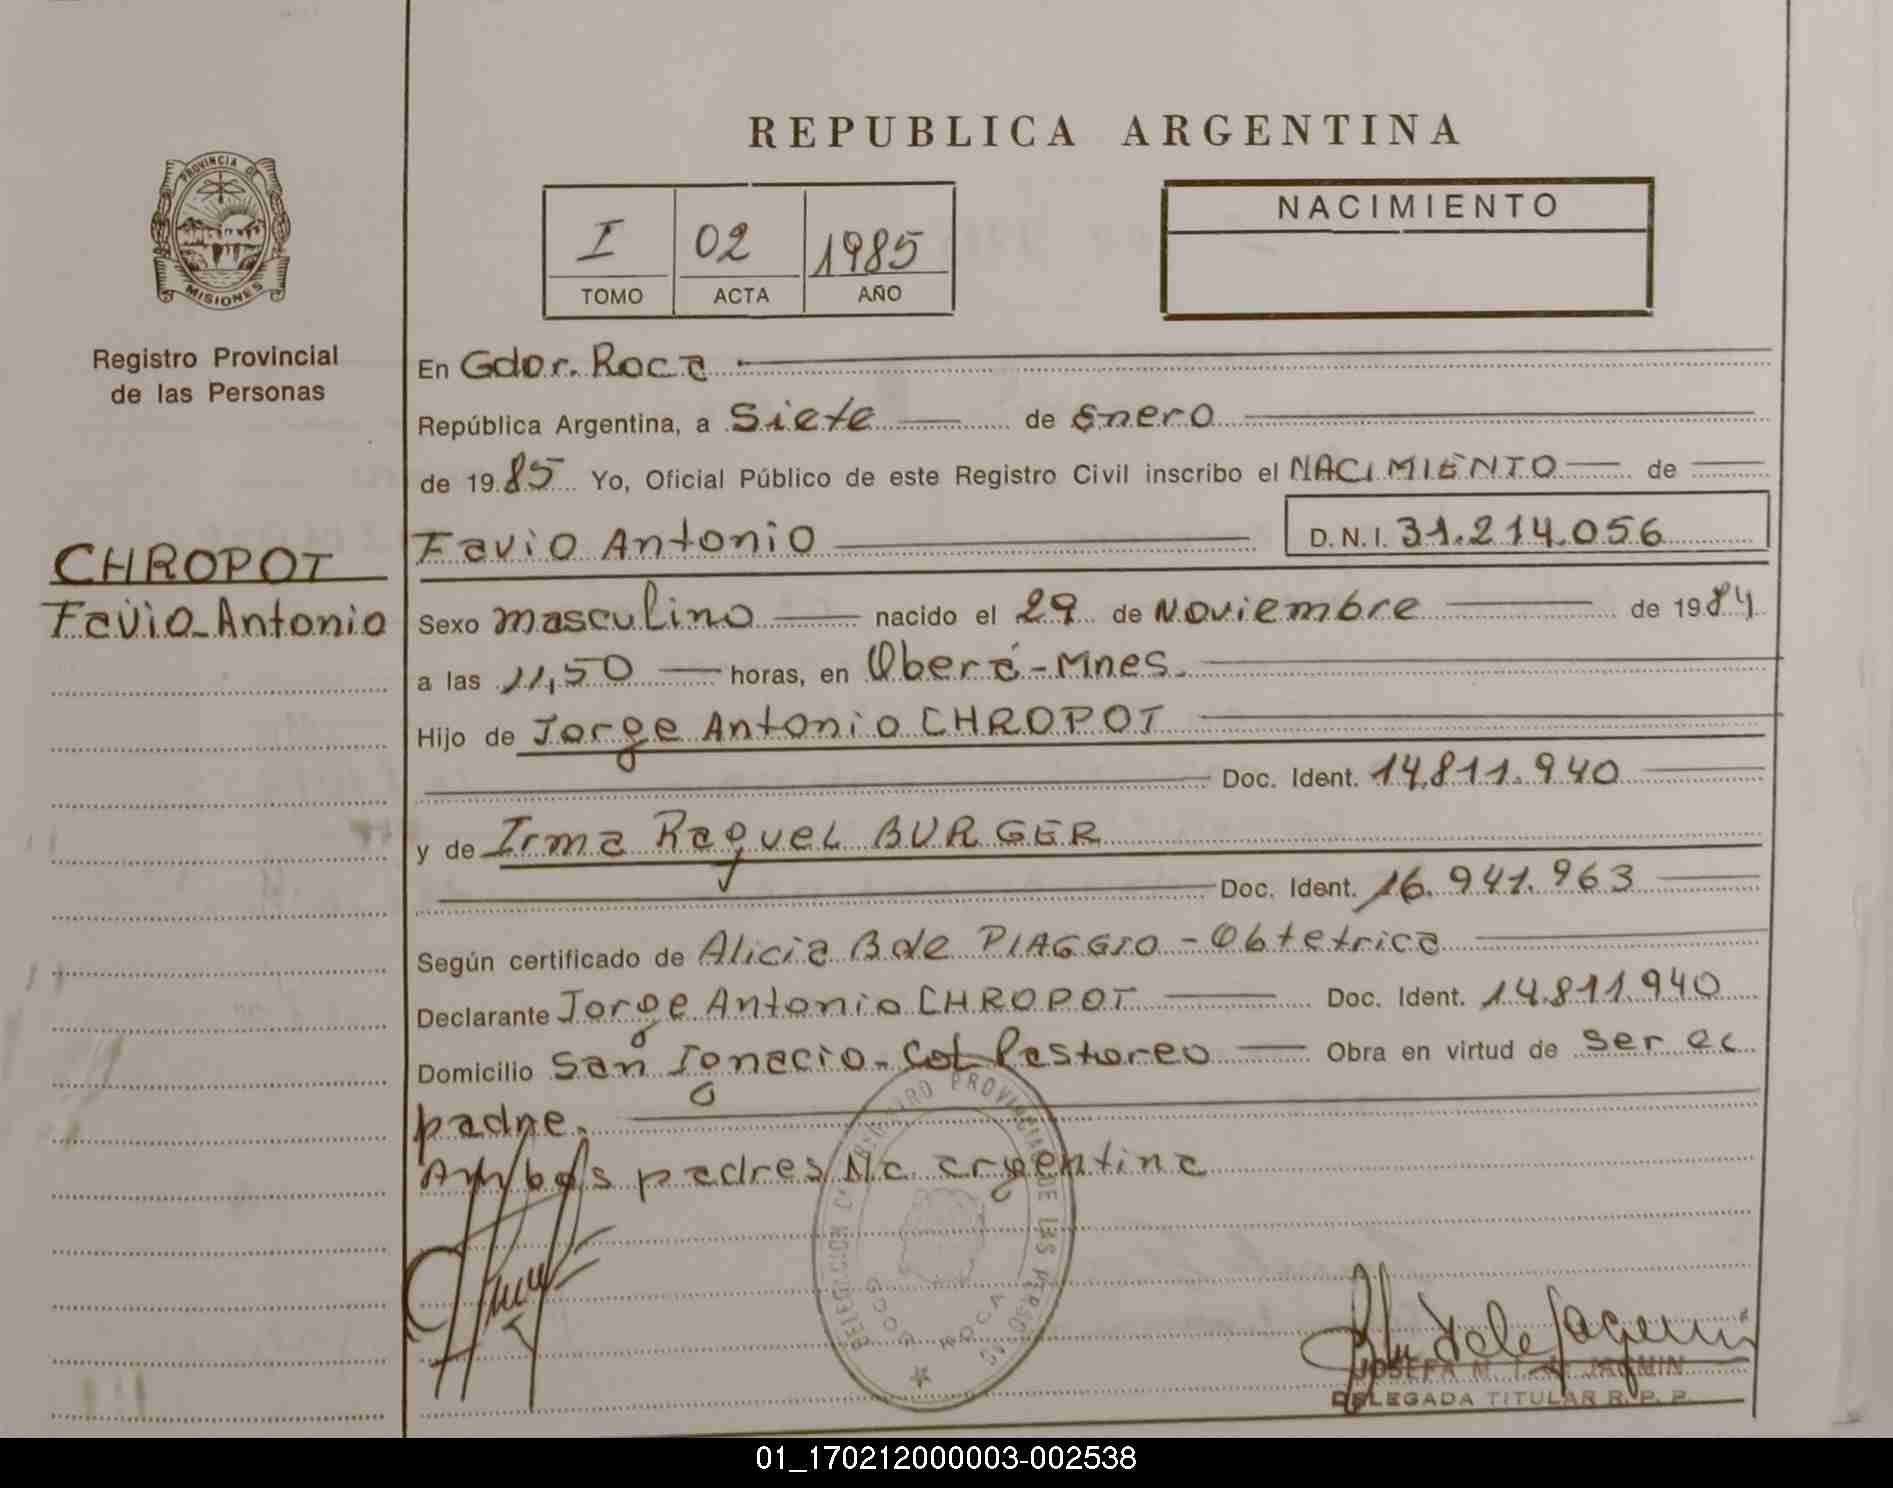 REPUBLICA ARGENTINA
PROVINCIA DE
MISIONES
Registro Provincial
de las Personas
I 02 1985
TOMO ACTA AÑO
NACIMIENTO
En Gdor. Roca
República Argentina, a Siete de Enero
de 1985 Yo, Oficial Público de este Registro Civil inscribo el NACIMIENTO de
CHROPOT
Favio Antonio
Favio Antonio D.N.I. 31.214.056
Sexo masculino nacido el 29 de Noviembre de 1984
a las 11,50 horas, en Oberá - Mnes.
Hijo de Jorge Antonio CHROPOT
Doc. Ident. 14.811.940
y de Irma Raquel BURGER
Doc. Ident. 16.941.963
Según certificado de Alicia B de PIAGGIO - Obtetrica
Declarante Jorge Antonio CHROPOT Doc. Ident. 14.811.940
Domicilio San Ignacio - Col Pastoreo Obra en virtud de ser el
padre.
Ambos padres Nc. argentina
REGISTRO PROVINCIAL DE LAS PERSONAS
DELEGACION
GDOR ROCA
JOSEFA M.
DELEGADA TITULAR R. P. P.
01_170212000003-002538